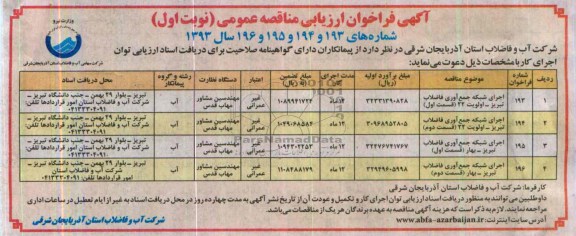 آگهی فراخوان ارزیابی مناقصه عمومی (نوبت اول)
شماره‌های ۱۹۳ و ۱۹۴ و ۱۹۵ و ۱۹۶ سال ۱۳۹۳
وزارت نیرو
شرکت آب و فاضلاب استان آذربایجان شرقی
شرکت آب و فاضلاب استان آذربایجان شرقی در نظر دارد از پیمانکاران دارای گواهینامه صلاحیت برای دریافت اسناد ارزیابی توان
اجرای کار با مشخصات ذیل دعوت می‌نماید:
ردیف شماره فراخوان موضوع مناقصه مبلغ برآورد اولیه (به ریال) مدت اجرای کار مبلغ تضمین (به ریال) اعتبار دستگاه نظارت رشته و گروه پیمانکار محل دریافت اسناد
۱ ۱۹۳ اجرای شبکه جمع‌آوری فاضلاب تبریز ـ اولویت ۲۲ (قسمت اول) ۱۲ ماه غیر عمرانی مهندسین مشاور مهاب قدس آب تبریز ـ بلوار ۲۹ بهمن ـ جنب دانشگاه تبریز ـ شرکت آب و فاضلاب استان امور قراردادها تلفن: ۰۴۱۳۳۳۰۴۰۹۱
۲ ۱۹۴ اجرای شبکه جمع‌آوری فاضلاب تبریز ـ اولویت ۲۲ (قسمت دوم) ۱۲ ماه غیر عمرانی مهندسین مشاور مهاب قدس آب تبریز ـ بلوار ۲۹ بهمن ـ جنب دانشگاه تبریز ـ شرکت آب و فاضلاب استان امور قراردادها تلفن: ۰۴۱۳۳۳۰۴۰۹۱
۳ ۱۹۵ اجرای شبکه جمع‌آوری فاضلاب تبریز ـ بهار (قسمت اول) ۱۲ ماه غیر عمرانی مهندسین مشاور مهاب قدس آب تبریز ـ بلوار ۲۹ بهمن ـ جنب دانشگاه تبریز ـ شرکت آب و فاضلاب استان امور قراردادها تلفن: ۰۴۱۳۳۳۰۴۰۹۱
۴ ۱۹۶ اجرای شبکه جمع‌آوری فاضلاب تبریز ـ بهار (قسمت دوم) ۱۲ ماه غیر عمرانی مهندسین مشاور مهاب قدس آب تبریز ـ بلوار ۲۹ بهمن ـ جنب دانشگاه تبریز ـ شرکت آب و فاضلاب استان امور قراردادها تلفن: ۰۴۱۳۳۳۰۴۰۹۱
کارفرما: شرکت آب و فاضلاب استان آذربایجان شرقی
داوطلبین می‌توانند به منظور دریافت اسناد ارزیابی توان اجرای کار و تکمیل و عودت آن از تاریخ نشر آگهی به مدت چهارده روز در محل دریافت اسناد به غیر از ایام تعطیل در ساعات اداری
مراجعه نمایند. لازم به ذکر است که هزینه آگهی مناقصه به عهده برندگان هر یک از مناقصات می‌باشد.
آدرس سایت اینترنت: www.abfa-azarbaijan.ir
شرکت آب و فاضلاب استان آذربایجان شرقی
ParsNamadData